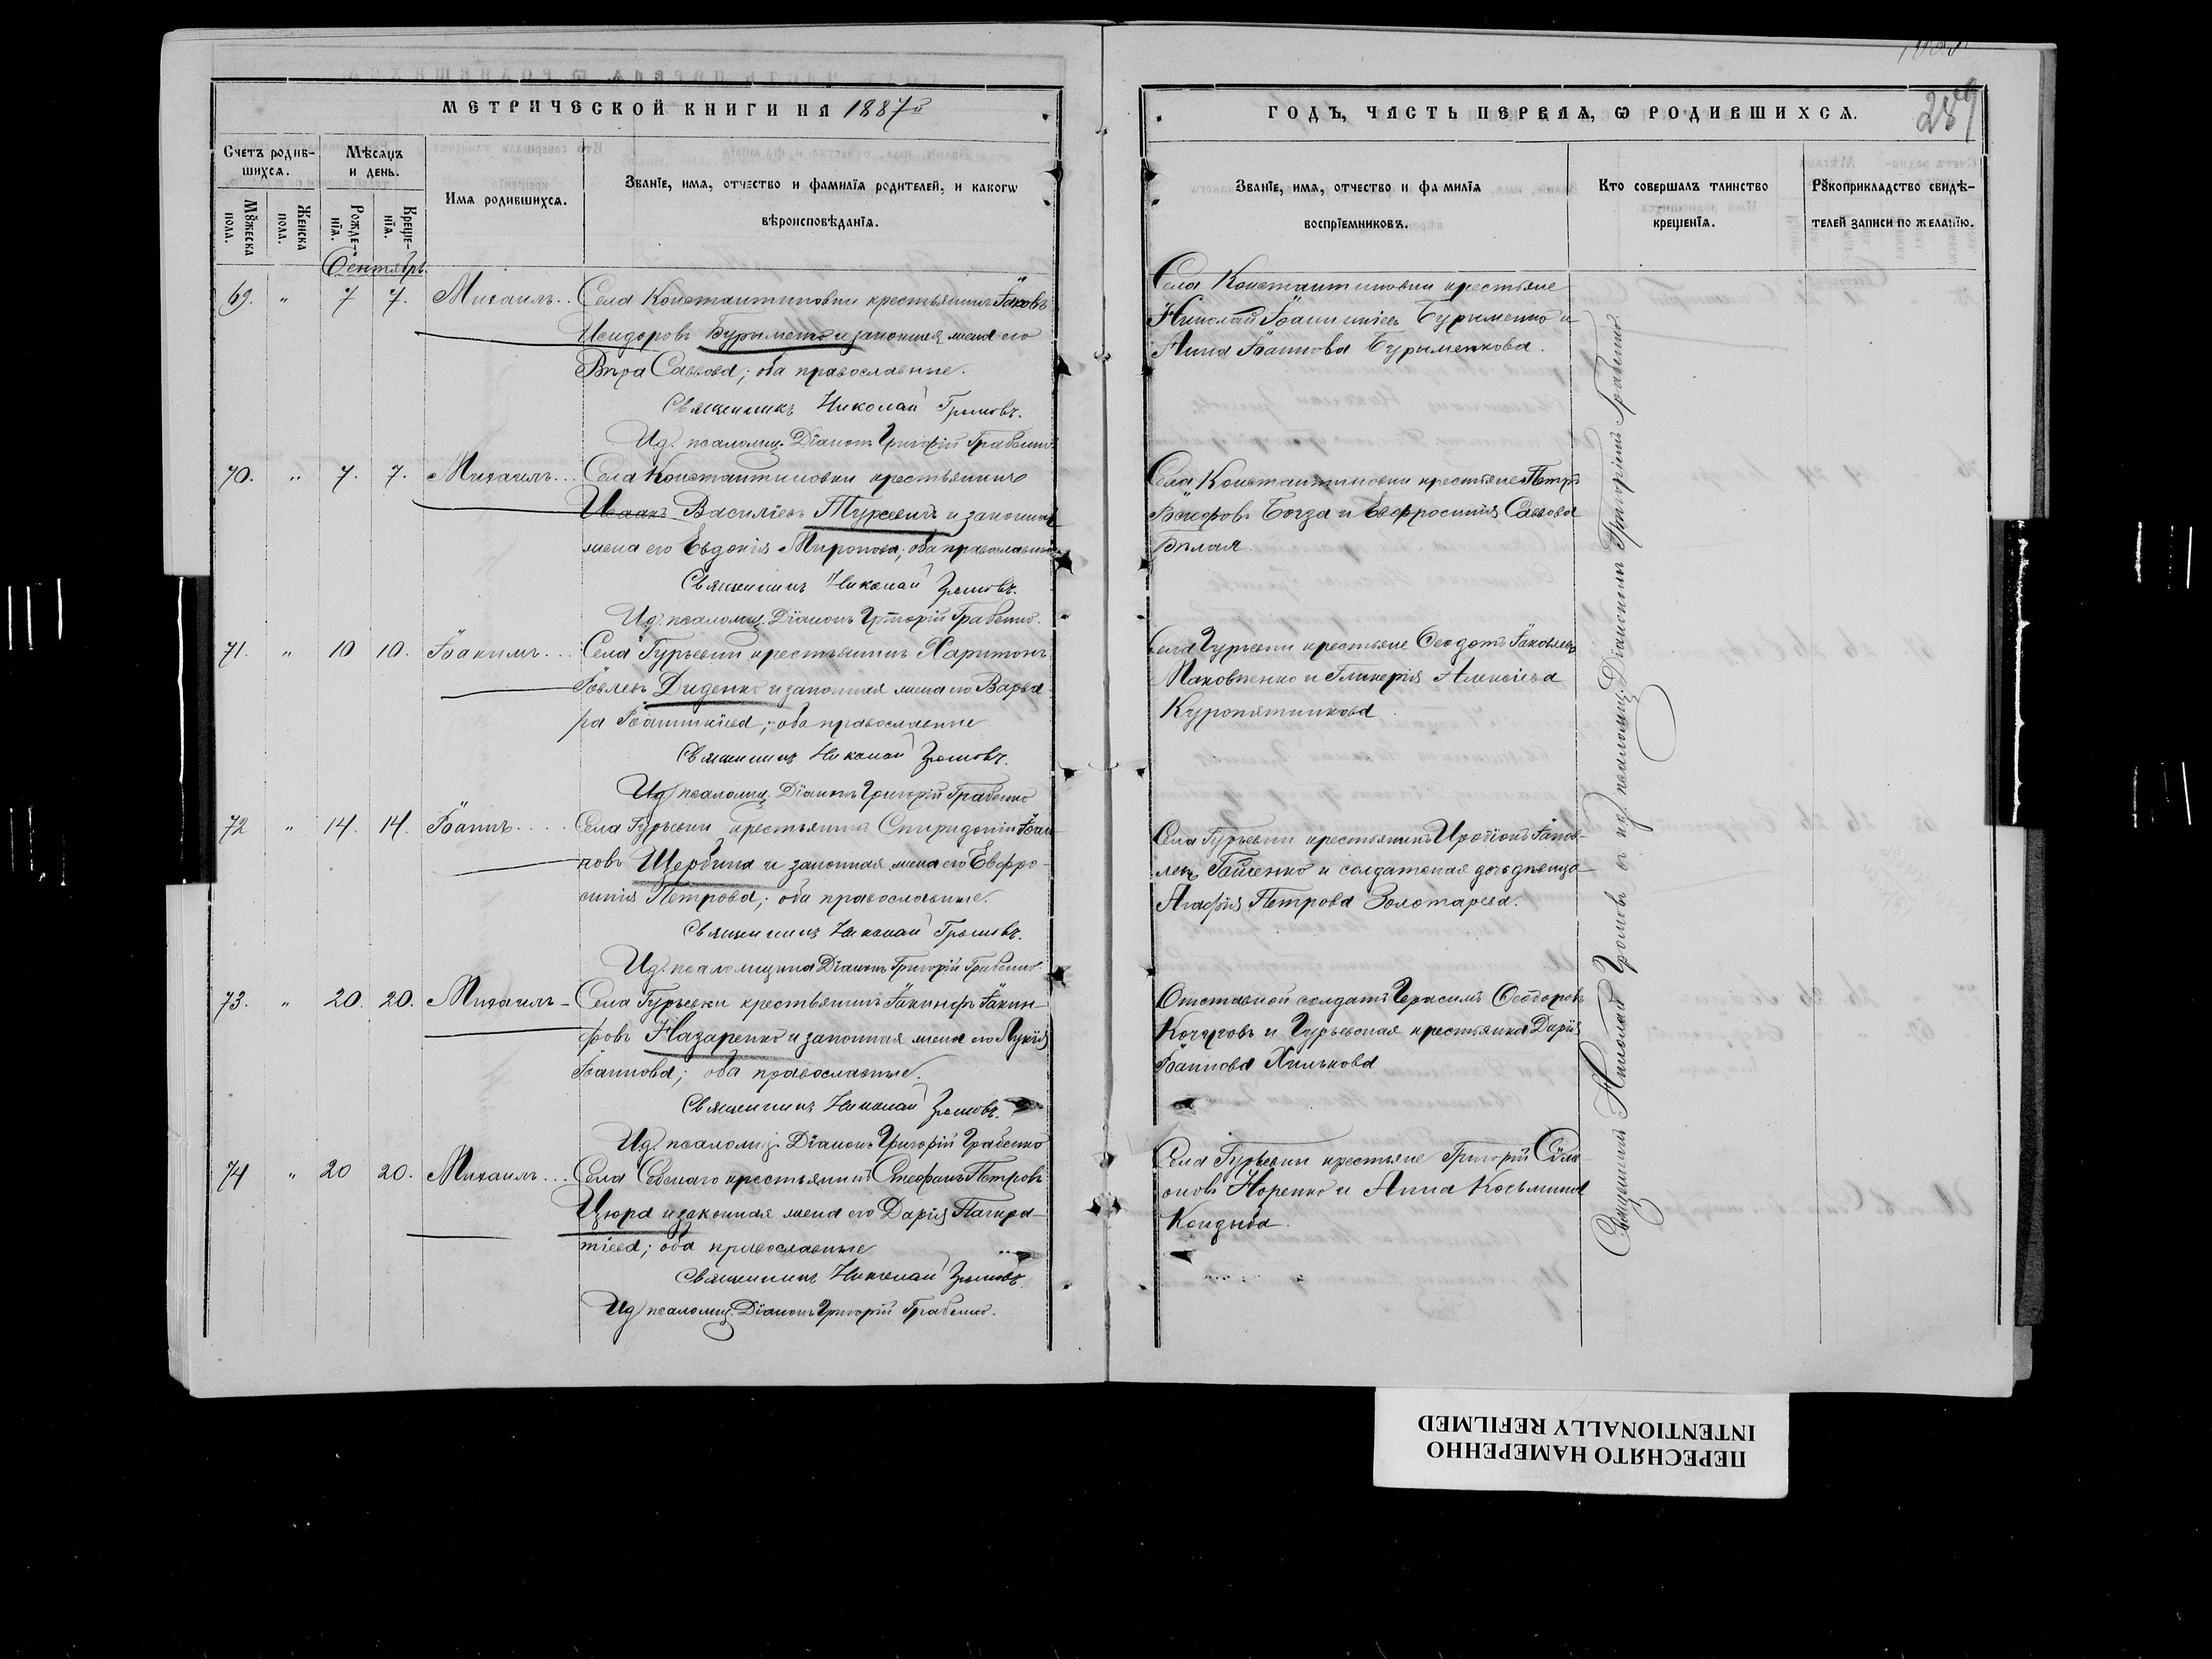 МЕТРИЧЕСКОЙ КНИГИ НА 1887й
Счетъ родив-
шихся.
Мѣсяцъ
и день.
Имя родившихся.
Званїе, имя, отчество и фамилїя родителей, и какогѡ
вѣроисповѣданїя.
Мꙋжеска
пола.
Женска
пола.
Рожде-
нїя.
Креще-
нїя.
Сентябрь
69. " 7 7. Михаилъ.. Села Константиновки крестьянинъ Іаковъ
Исидоровъ Бурыменко и законная жена его
Вѣра Саввова; оба православные.
Священникъ Николай Громовъ.
Ид. псаломщ. Діаконъ Григорій Грабенко
70. " 7. 7. Михаилъ... Села Константиновки крестьянинъ
Исаакъ Василіевъ Туржевичъ и законная
жена его Евдокія Миронова; оба православные
Священникъ Николай Громовъ.
Ид. псаломщ. Діаконъ Григорій Грабенко.
71. " 10 10. Іоакимъ... Села Гурьевки крестьянинъ Харитонъ
Іовлевъ Диденко и законная жена его Варва-
ра Іоанникіева; оба православные
Священникъ Николай Громовъ.
Ид. псаломщ. Діаконъ Григорій Грабенко
72 " 14. 14. Іоаннъ.... Села Гурьевки крестьянинъ Спиридонъ Іоан
новъ Щербина и законная жена его Евфро-
синія Петрова; оба православные.
Священникъ Николай Громовъ.
Ид. псаломщика Діаконъ Григорій Грабенко
73. " 20. 20. Михаилъ- Села Гурьевки крестьянинъ Іакинфъ Іакин-
фовъ Назаренко и законная жена его Лукія
Іоаннова; оба православные.
Священникъ Николай Громовъ.
Ид. псаломщ. Діаконъ Григорій Грабенко
74 " 20 20. Михаилъ... Села Себскаго крестьянинъ Стефанъ Петровъ
Цюра и законная жена его Дарія Панкра-
тіева; оба православные
Священникъ Николай Громовъ.
Ид. псаломщ. Діаконъ Григорій Грабенко.
ГОДЪ, ЧАСТЬ ПЕРВАЯ, Ѡ РОДИВШИХСЯ.
289
Званїе, имя, отчество и фамилїя
воспрїемниковъ.
Кто совершалъ таинство
крещенїя.
Рꙋкоприкладство свидѣ-
телей записи по желанїю.
Села Константиновки крестьяне
Николай Іоанникіевъ Бурыменко и
Анна Іоаннова Бурыменкова.
Села Константиновки крестьяне Петръ
Богза и Евфросинія Саввова
Бѣлая
Села Гурьевки крестьяне Ѳеодотъ Іаковлевъ
Маковѣенко и Гликерія Алексіева
Куропятникова
Села Гурьевки крестьянинъ Иродіонъ Іаков-
левъ Гайченко и солдатская дочь дѣвица
Агафія Петрова Золотарева.
Отставной солдатъ Герасимъ Ѳеодоровъ
и Гурьевская крестьянка Дарія
Іоаннова Хилькова
Села Гурьевки крестьяне Григорій Симе-
оновъ Норенко и Анна Косьмина
Кондыба.
Священникъ Николай Громовъ съ ид. псаломщ. Діакономъ Григоріемъ Грабенко.
ПЕРЕСНЯТО НАМЕРЕННО
INTENTIONALLY REFILMED